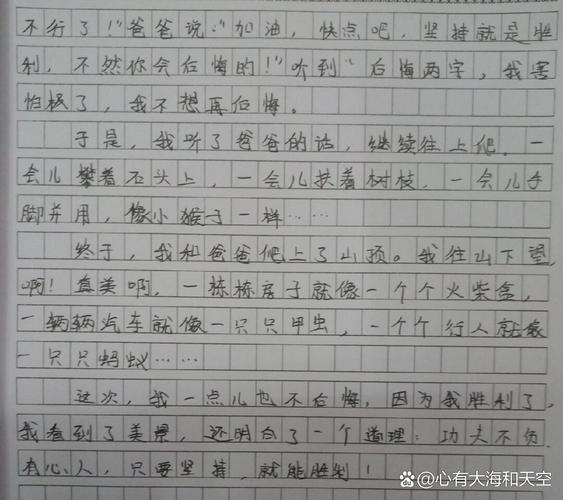 不行了！"爸爸说："加油，快点吧，坚持就是胜
利，不然你会后悔的！"听到"后悔两字，我害
怕极了，我不想再后悔。
于是，我听了爸爸的话，继续往上爬。一
会儿攀着石头上，一会儿扶着树枝，一会儿手
脚并用，像小猴子一样……
终于，我和爸爸爬上了山顶。我往山下望，
啊！真美啊，一栋栋房子就像一个个火柴盒，
一辆辆汽车就像一只只甲虫，一个个行人就像
一只只蚂蚁……
这次，我一点儿也不后悔，因为我胜利了，
我看到了美景，还明白了一个道理：功夫不负
有心人，只要坚持，就能胜利！
@心有大海和天空